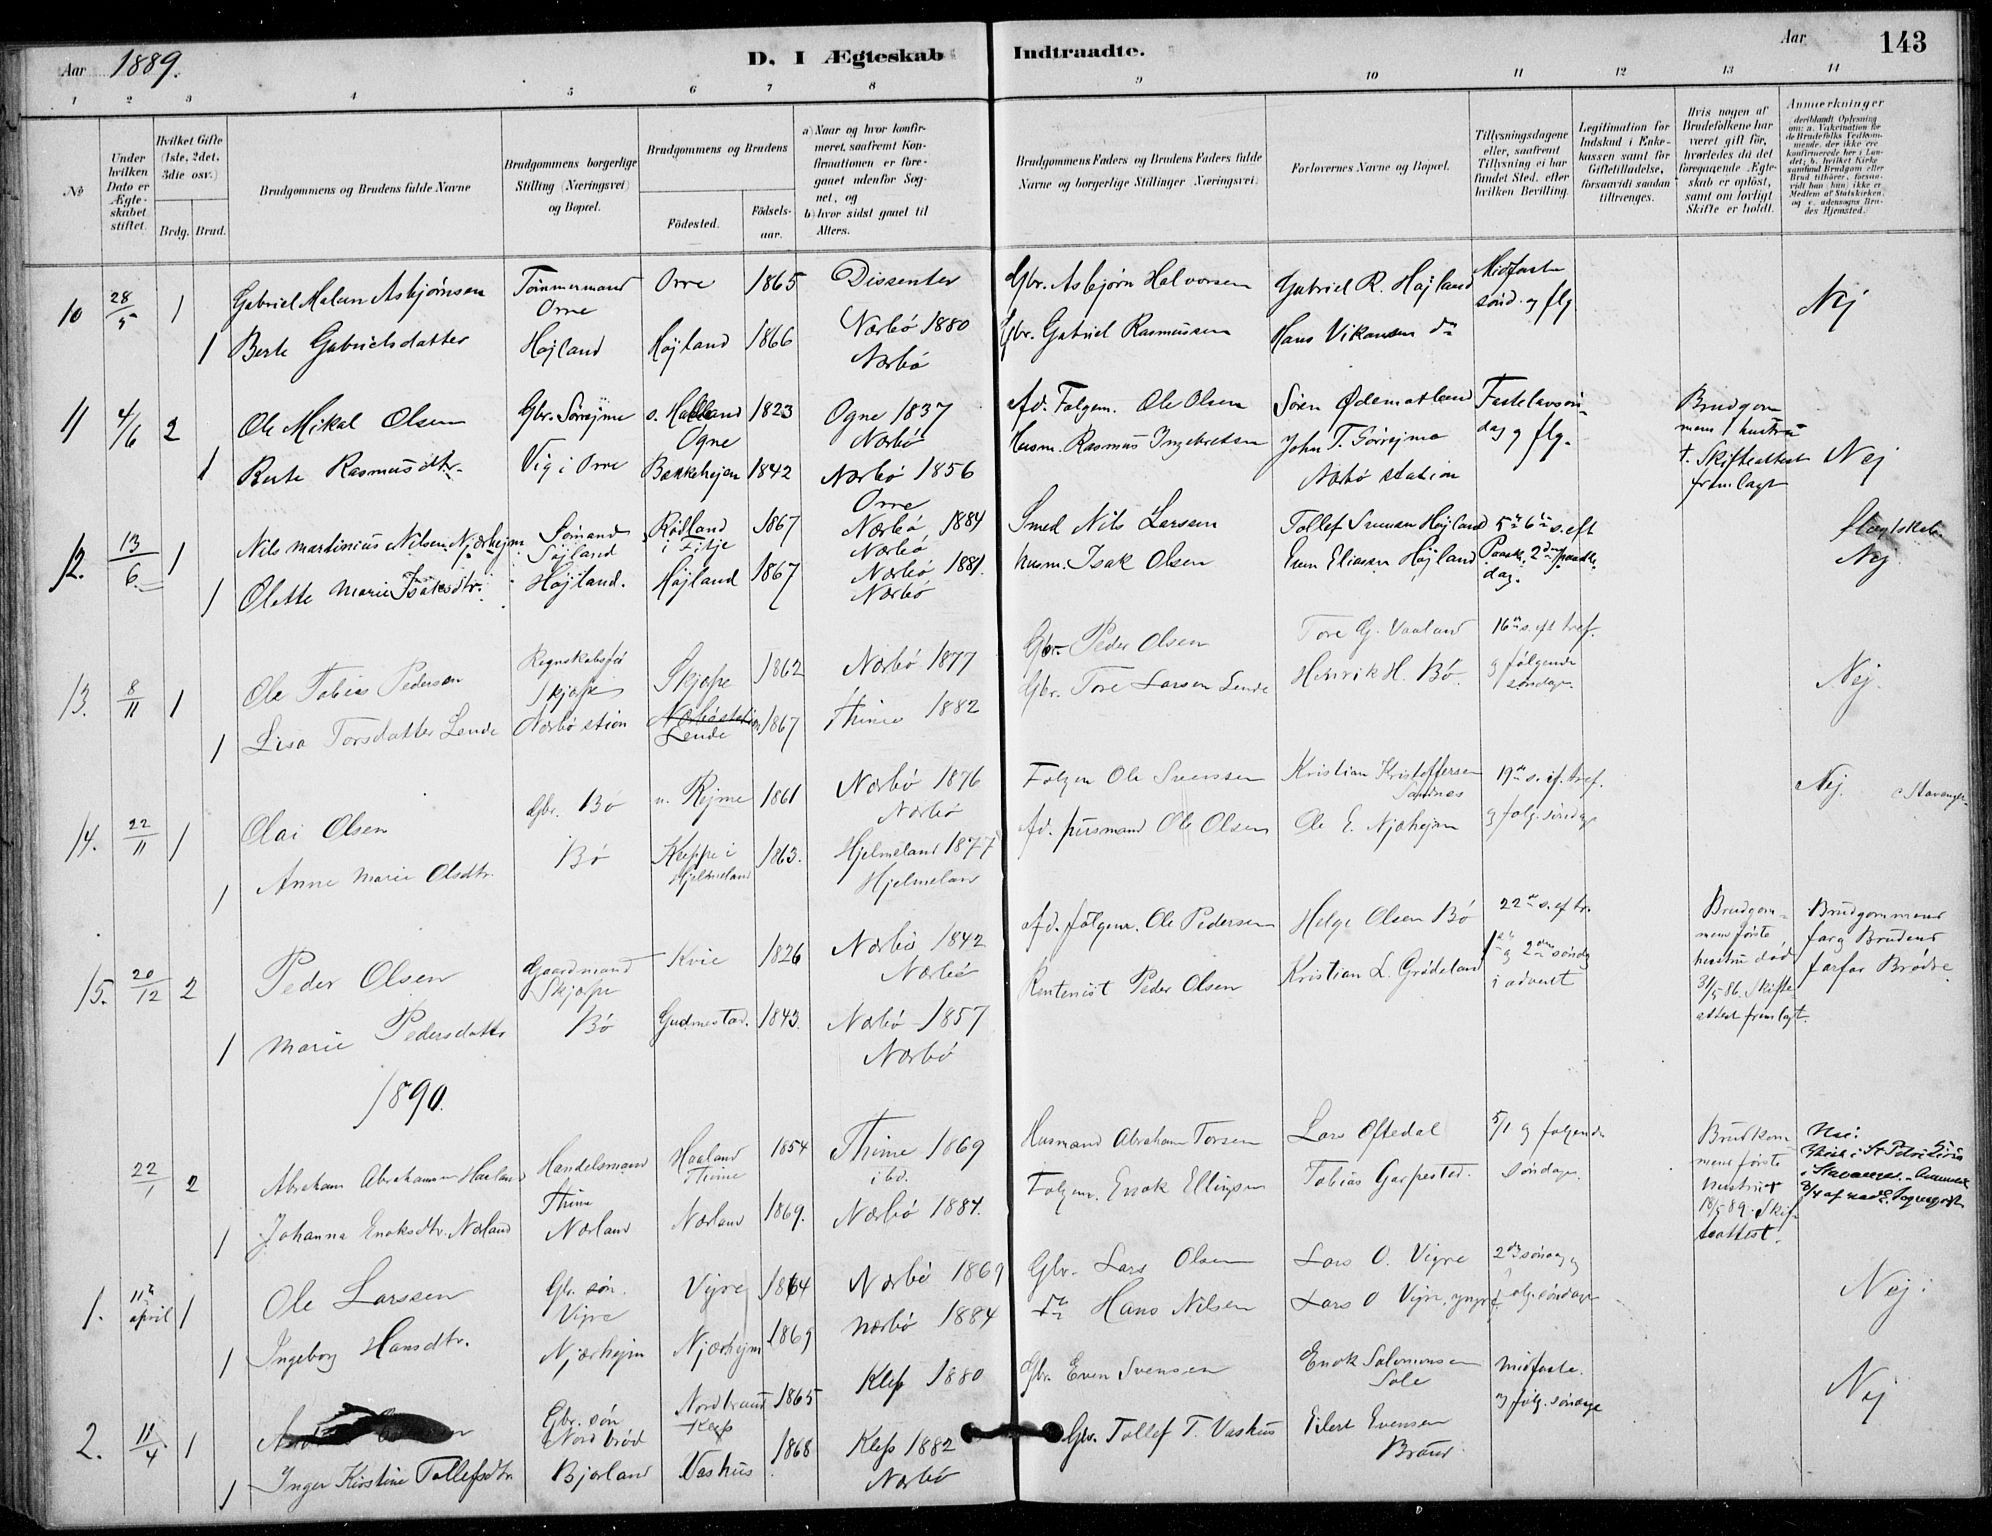 Aar 1889.
D. I Ægteskab Indtraadte.
Aar 143
1 2 3 4 5 6 7 8 9 10 11 12 13 14
No
Under hvilken Dato er Ægteskabet stiftet.
Hvilket Gifte (1ste, 2det, 3die osv.)
Brdg. Brud.
Brudgommens og Brudens fulde Navne
Brudgommens borgerlige Stilling (Næringsvei) og Bopæl.
Brudgommens og Brudens
Födested.
Födsels-aar.
a) Naar og hvor konfirmeret, saafremt Konfirmationen er foregaaet udenfor Sognet, og
b) hvor sidst gaaet til Alters.
Brudgommens Faders og Brudens Faders fulde Navne og borgerlige Stillinger (Næringsvei)
Forlovernes Navne og Bopæl.
Tillysningsdagene eller, saafremt Tillysning ei har fundet Sted, efter hvilken Bevilling.
Legitimation for Indskud i Enkekassen samt for Giftetilladelse, forsaavidt saadan tiltrænges.
Hvis nogen af Brudefolkene har været gift för, hvorledes da det foregaaende Ægteskab er oplöst, samt om lovligt Skifte er holdt.
Anmærkninger
deriblandt Oplysning om: a. Vakcination for de Brudefolks Vedkommende, der ikke ere konfirmerede her i Landet; b. hvilket Kirkesamfund Brudgom eller Brud tilhører, forsaavidt han (hun) ikke er Medlem af Statskirken, og c. udensogns Brudes Hjemsted.
10 28/5 1 Gabriel Malun Asbjørnsen Tømmermand Orre Orre 1865 Dissenter Gbr. Asbjørn Halvorsen Gabriel R. Højland Midfaste sønd. og flg Nej
1 Berte Gabrielsdatter Højland Højland 1866 Nærbø 1880 Nærbø Gbr. Gabriel Rasmussen Hans Vikansen do
11 4/6 2 Ole Mikal Olsen Gbr. Sørrejme s. Haaland Ogne 1823 Ogne 1837 Nærbø Afd. Følgem. Ole Olsen Søren Ødemotland Fastelavsøndag og flg. Brudgommens 1 hustru † Skifteattest fremlagt Nej
1 Berte Rasmusdtr. Vig i Orre Bakkehejan 1842 Nærbø 1856 Orre Husm. Rasmus Ingebretsen John T. Sørrejme Nærbø station
12. 13/6 1 Nils Martinius Nilsen Njærhejm Sømand Søjland Rødland 1867 Nærbø 1884 Nærbø Smed Nils Larssen Tollef Svensen Højland 5te 6te s. eft Paask. 2den paaske dag. Nej
1 Olette Marie Isaksdtr. Højland. Højland 1867 Nærbø 1881. Nærbø Husm. Isak Olsen Even Eliassen Højland
13. 8/11 1 Ole Tobias Pedersen Skjærpe Skjærpe 1862 Nærbø 1877 Gbr. Peder Olsen Tore G. Vaaland 16de s. eft tref. og følgende søndage. Nej.
1 Lisa Torsdatter Lende Nærbø stion Nærbø station Lende 1867 Thime 1882 Gbr. Tore Larsen Lende Henrik H. Bø.
14. 22/11 1 Olai Olsen Gbr. Bø n. Rejme 1861 Nærbø 1876 Nærbø Følgem Ole Svenssen Kristian Kristoffersen Sandnes 19de s. ef. tref. og følg. søndage Nej. c Stavanger
1 Anne Marie Olsdtr. Bø Keppe i Hjelmeland 1863. Hjelmeland 1877 Hjelmeland Afd. Husmand Ole Olsen Ole E. Njæhejm
15. 20/12 2 Peder Olsen Gaardmand Skjærpe Kvie 1826 Nærbø 1842 Nærbø Afd. følgem. Ole Pedersen Helge Olsen Bø 22de s. ef tr. 1ste og 2den sønd i advent Brudgommens første hustru død 31/5 86. Skifteattest fremlagt. Brudgommens far og Brudens farfar Brødre
1 Marie Pedersdatter Bø Gudmestad. 1843. Nærbø 1857 Nærbø Rentenist Peder Olsen Kristian L. Grødeland
1890.
22/1 2 Abraham Abrahamsen Haaland Handelsmand Thime Haaland Thime 1854 Thime 1869 ibd. Husmand Abraham Torsen Lars Oftedal 5/1 og følgende søndage. Brudgommens første hustru † 18/5 89. Skifteattest.
1 Johanna Enoksdtr. Nærland Nærland Nærland 1869. Nærbø 1884. Følgem. Enok Ellingsen Tobias Garpestad.
1. 11te april 1 Ole Larssen Gbr. søn. Vigre Vigre 1864 Nærbø 1869 Gbr. Lars Olsen Lars O. Vigre 2den søndag og følg. søndage Nej.
1 Ingeborg Hansdtr. Njærhejm Njærhejm 1869 Nærbø 1884 do Hans Nilsen Lars O Vigre, yngre
2. 11/4 1 Gbr. søn Nordbrød Nordbraut Klep 1865 Klep 1880 Gbr. Even Svensen Enok Salomonsen Sole midfaste. og følg. søndage Nej
1 Inger Kirstine Tollefsdtr. Bjorland Vashus 1868 Klep 1882 Nærbø Gbr. Tollef T. Vashus Eilert Evensen Braut